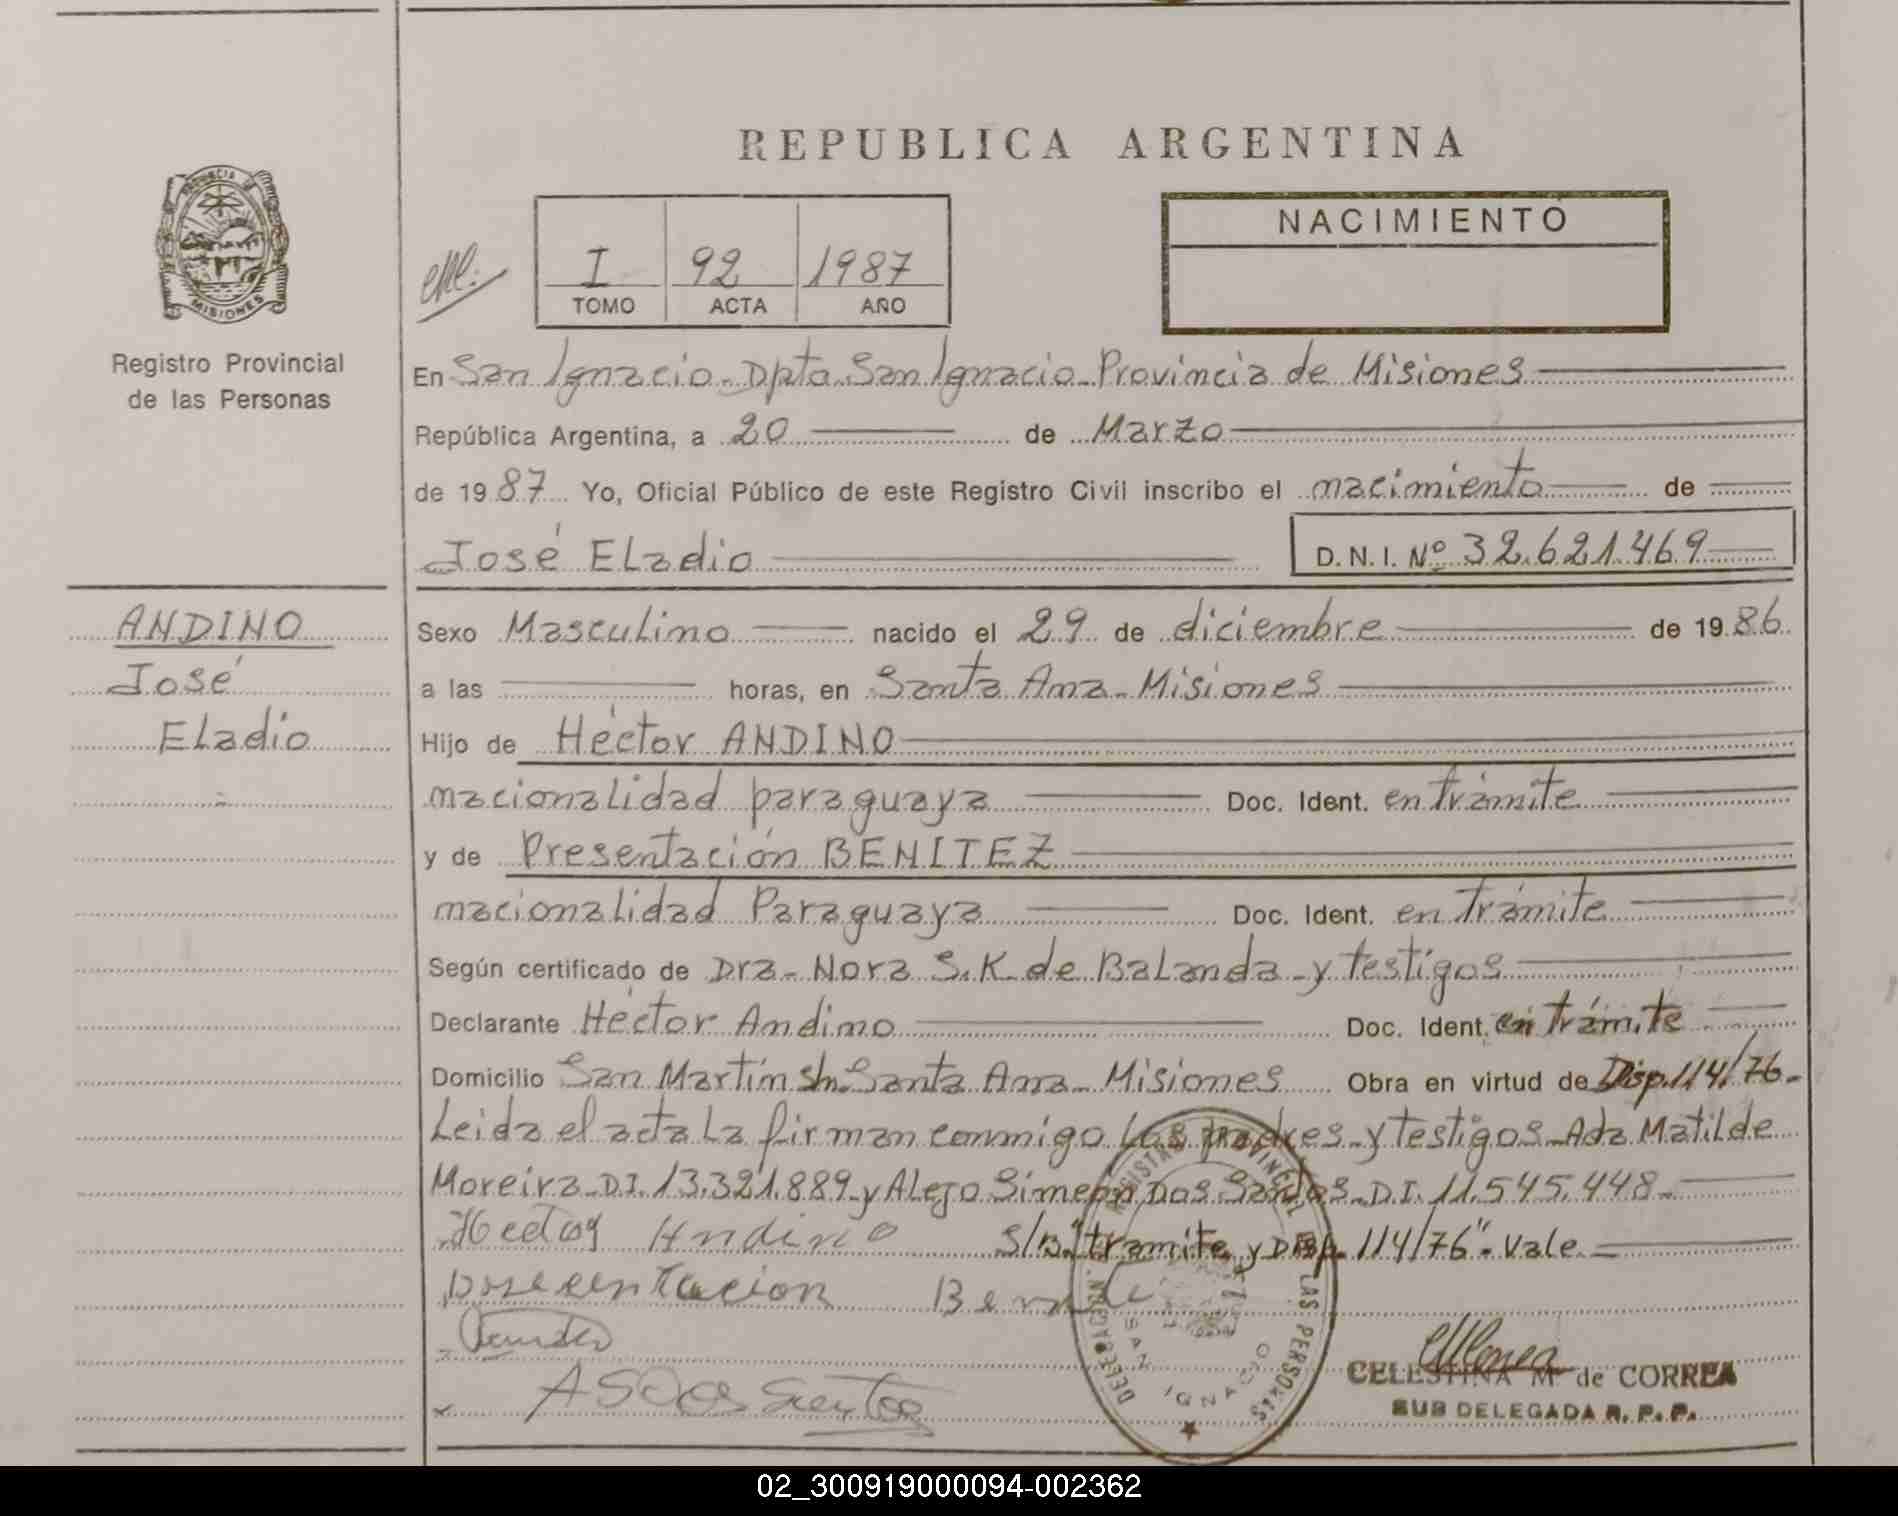 REPUBLICA ARGENTINA
PROVINCIA DE
MISIONES
Registro Provincial
de las Personas
I 92 1987
TOMO ACTA AÑO
NACIMIENTO
En San Ignacio - Dpto San Ignacio - Provincia de Misiones
República Argentina, a 20 de Marzo
de 1987 Yo, Oficial Público de este Registro Civil inscribo el nacimiento de
José Eladio D.N.I. Nº 32.621.469
ANDINO
José
Eladio
Sexo Masculino nacido el 29 de diciembre de 1986
a las horas, en Santa Ana - Misiones
Hijo de Héctor ANDINO
nacionalidad paraguaya Doc. Ident. en trámite
y de Presentación BENITEZ
nacionalidad Paraguaya Doc. Ident. en trámite
Según certificado de Dra - Nora S.K. de Balanda - y testigos
Declarante Héctor Andino Doc. Ident. en trámite
Domicilio San Martín s/n. Santa Ana - Misiones Obra en virtud de Disp. 114/76 -
Leida el acta la firman conmigo los padres - y testigos - Ada Matilde
Moreira - D.I. 13.321.889 - y Alejo Simeón Dos Santos - D.I. 11.545.448 -
Hector Andino S/B. "tramite y Disp. 114/76" - Vale -
Presentacion
A S Dos Santos
DELEGACION REGISTRO PROVINCIAL DE LAS PERSONAS
SAN IGNACIO
CELESTINA M. de CORREA
SUB DELEGADA R. P. P.
02_300919000094-002362